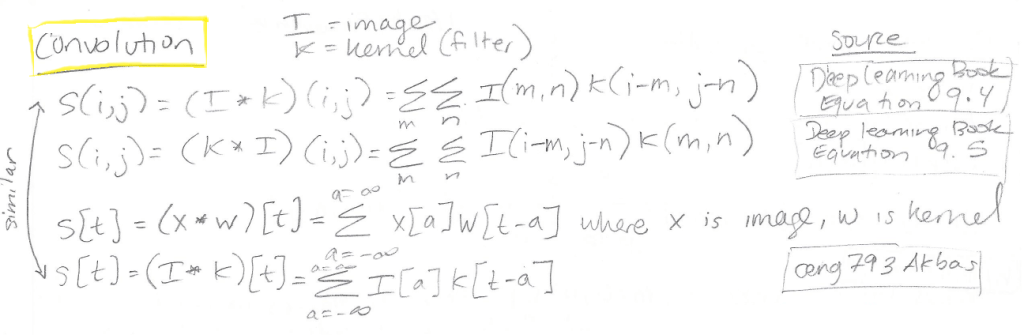 Convolution
I = image
K = kernel (filter)
Source
S(i,j) = (I * K) (i,j) = ΣΣ I(m,n) K(i-m, j-n)
m n
Deep Learning Book
Equation 9.4
S(i,j) = (K * I) (i,j) = Σ Σ I(i-m, j-n) K(m,n)
m n
Deep learning Book
Equation 9.5
similar
a=∞
S[t] = (x * w)[t] = Σ x[a]w[t-a] where x is image, w is kernel
a=-∞
a=∞
S[t] = (I * K)[t] = Σ I[a] K[t-a]
a=-∞
ceng 793 Akbas